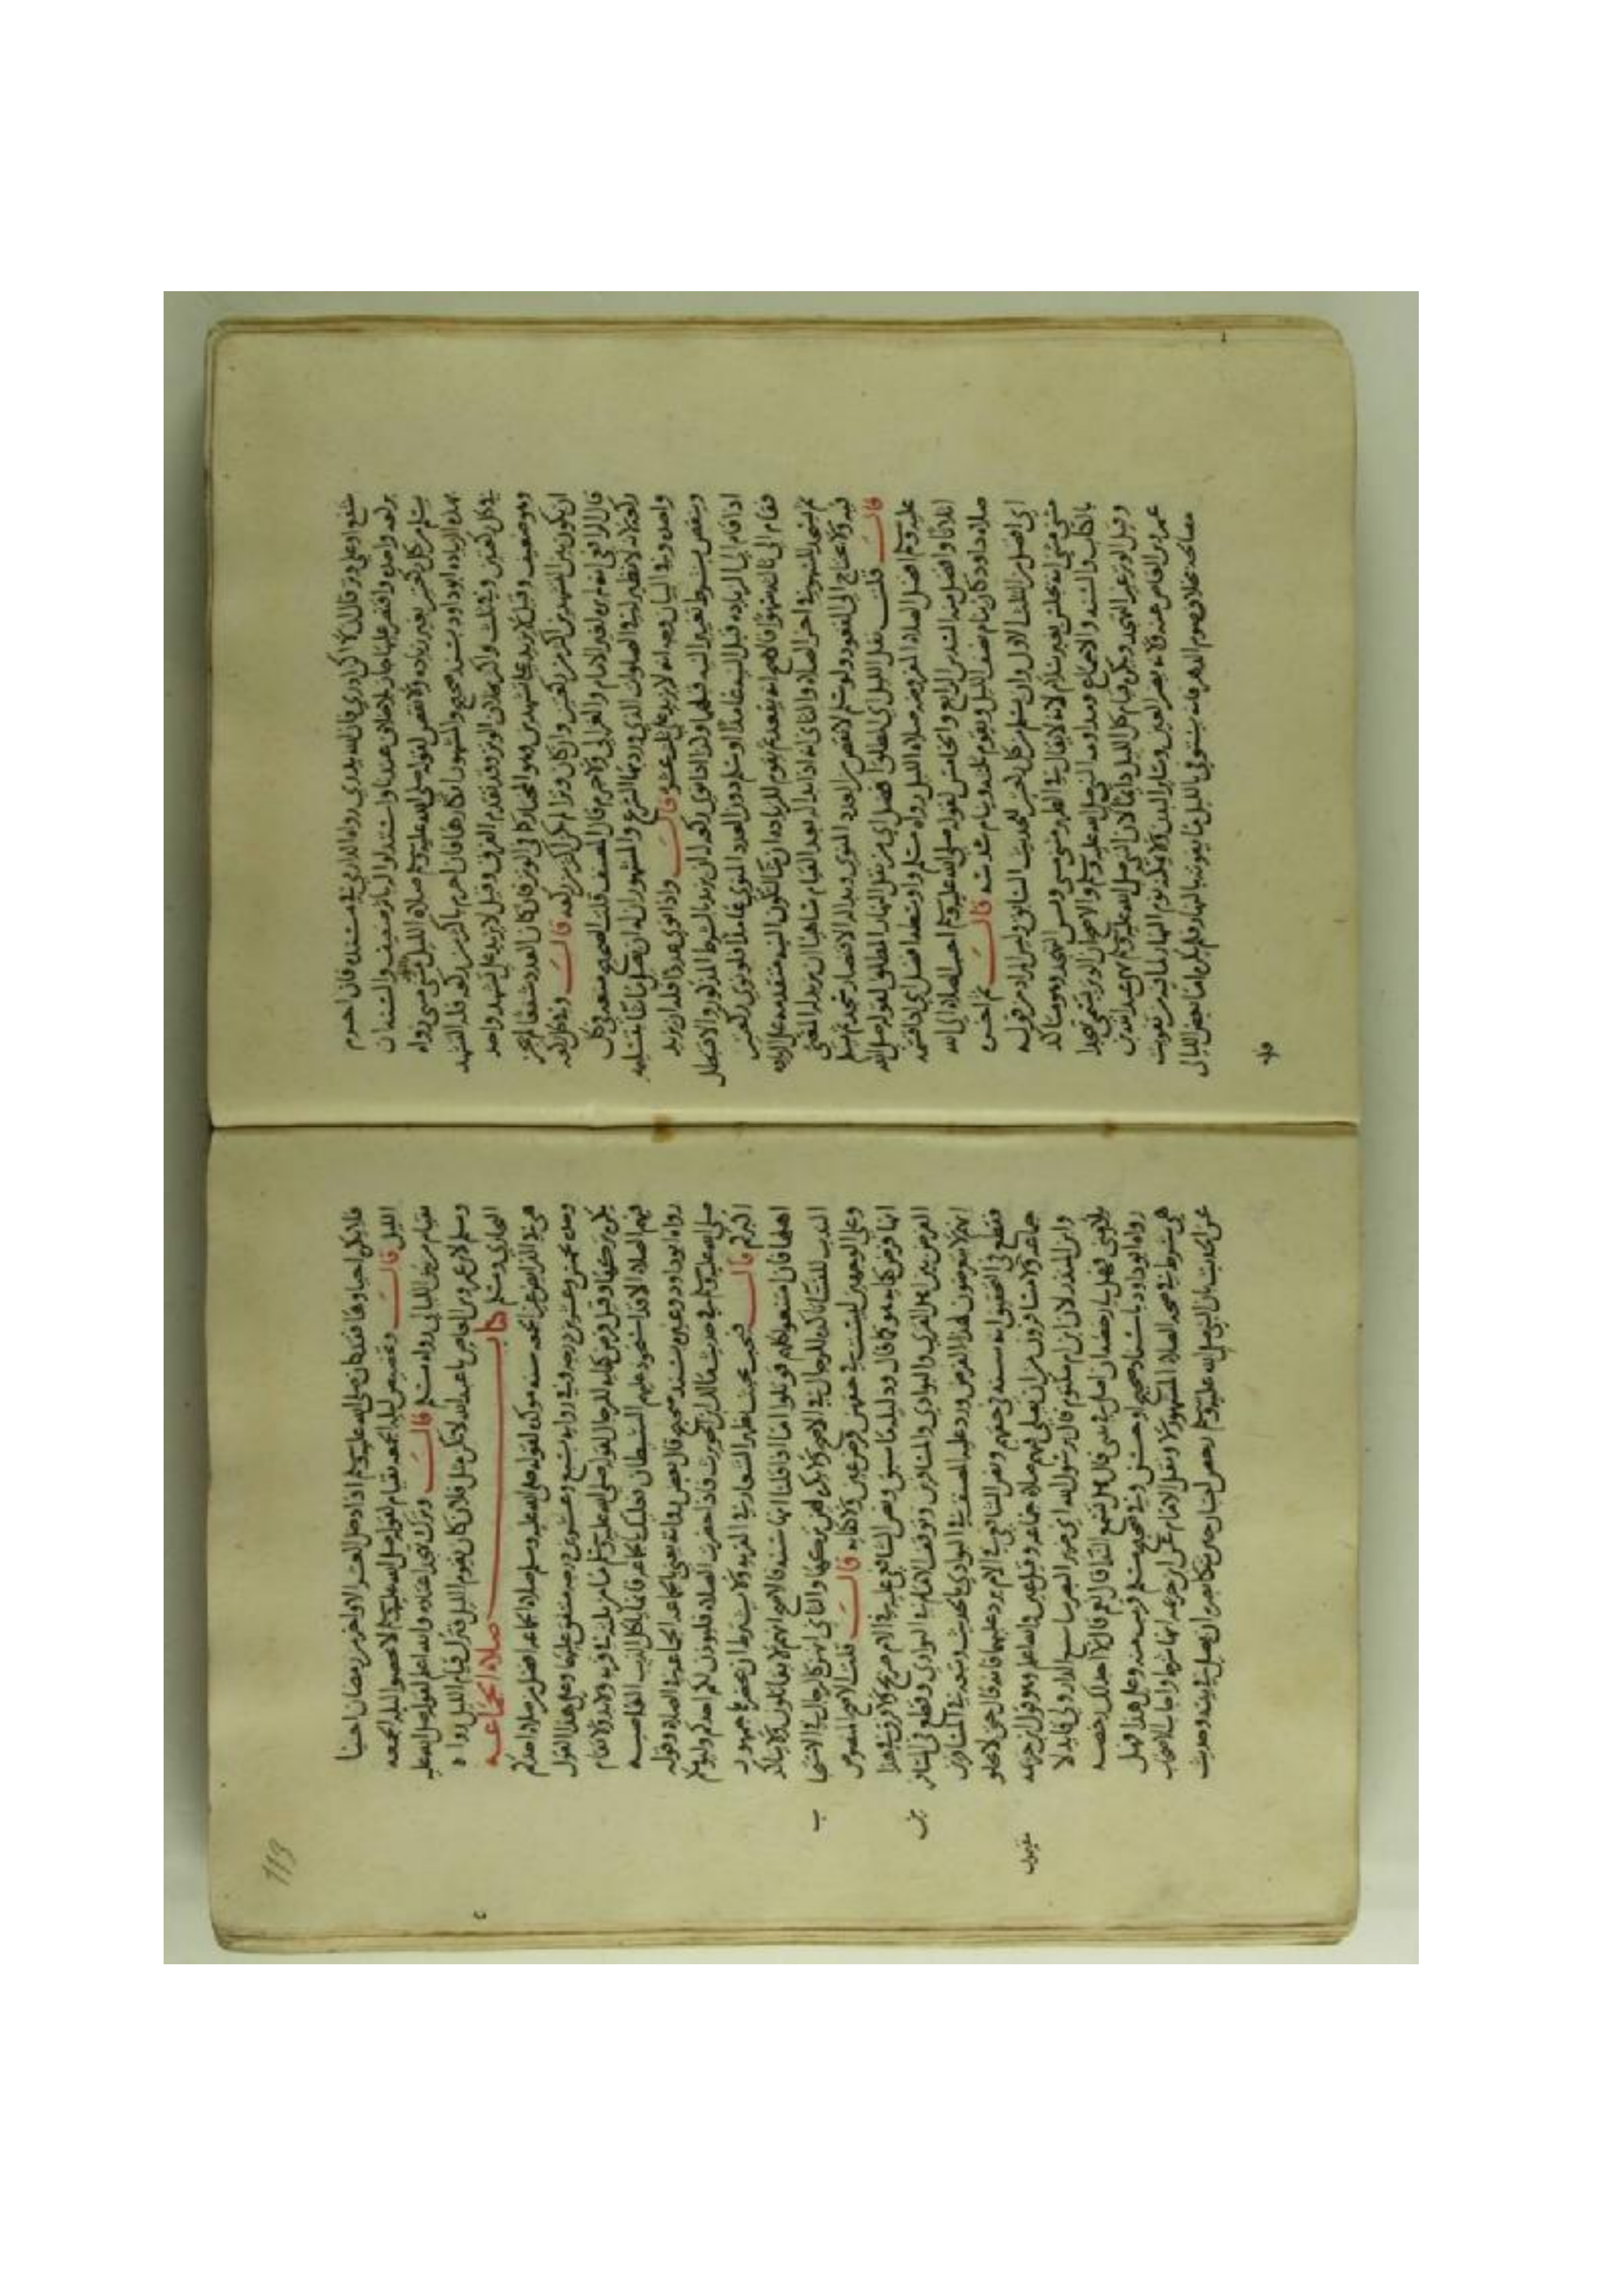 شفع او على وتر قال ان لا اكن ادري فان الله يدري رواه الدارمي في مسنده فان احرم
بركعه واحده واقتصر عليها جاز بلا خلاف عندنا واستدلوا له باثر ضعيف والسنه ان
يسلم من كل ركعتين بغير زياده ولا نقص لقوله صلى الله عليه وسلم صلاه الليل مثنى مثنى رواه
بهذه الزياده ابو داود بسند صحيح والمشهور انكارها فان احرم باكثر من ركعه فله التشهد
في كل ركعتين وفي ثلاث واكثر كما في الوتر وقد تقدم الفرق وقيل لا يزيد على تشهد واحد
وهو ضعيف وقيل لا يزيد على تشهدين وهو المختار كما في الوتر فان كان العدد شفعا لم يجز
ان يكون بين التشهدين اكثر من ركعتين وان كان وترا لم يكن اكثر من ركعه قالـــ وفي كل ركعه
قال الرافعي انه لم يره لغير الامام والغزالي ولا جرم قال المصنف قلت الصحيح منعه في كل
ركعه لانه لا نظير له في الصلوات الذي ورد بها الشرع والمشهور ان له ان يصلي ما شا بتسليمه
واحده وفي البيان وجه انه لا يزيد على ثلث عشره قالـــ واذا نوى عددا فله ان يزيد
وينقص بشرط تغيير النيه قبلهما ولذا اذا نوى ركعه له ان يزيد بالشرط المذكور والا فتبطل
اذا قام الى الزياده قبل النيه عامدا او سلم دون العدد المنوي عامدا فلو نوى ركعتين
فقام الى ثالثه سهوا فالاصح انه يقعد ثم يقوم للزياده ان شا لتكون النيه متقدمه على الزياده
ثم يسجد للسهو في اخر الصلاه والثاني انه اذا بدا له بعد القيام ساهيا ان يزيد له المضي
فيه ولا يحتاج الى القعود ولو سلم لانقص من العدد المنوي وبدا له الاقتصار سجد ثم سلم
قالـــ قلت نفل الليل اي المطلق افضل اي من نفل النهار المطلق لقوله صلى الله
عليه وسلم افضل الصلاه بعد الفريضه صلاه الليل رواه مسلم واوسطه افضل اي اذا قسمه
اثلاثا وافضل منه السدس الرابع والخامس لقوله صلى الله عليه وسلم احب الصلاه الى الله
صلاه داود كان ينام نصف الليل ويقوم ثلثه وينام سدسه قالـــ ثم اخره
اي افضل من الثلث الاول وان يسلم من كل ركعتين للحديث السابق وليس المراد من قوله
مثنى مثنى انه يجلس بغير سلام لانه لا يقال في الظهر مثنى مثنى ويسن التهجد وهو متاكد
بالكتاب والسنه والاجماع ومداومه النبي صلى الله عليه وسلم والاصح ان الوتر يسمى تهجدا
وقيل الوتر غير التهجد ويكره قيام كل الليل دايما لان النبي صلى الله عليه وسلم نهى عبد الله بن
عمرو بن العاص عنه ولانه يضر العين وساير البدن ولا يمكنه نوم النهار لما فيه من تفويت
مصالحه بخلاف صوم الدهر فانه يستوفي بالليل ما يفوته بالنهار فان كان احيا بعض الليالي
فلا
فلا يكره احياوها فقد كان صلى الله عليه وسلم اذا دخل العشر الاواخر من رمضان احيا
الليل قالـــ وتخصيص ليله الجمعه بقيام لقوله صلى الله عليه وسلم لا تخصوا ليله الجمعه
بقيام من بين الليالي رواه مسلم قالـــ وترك تهجد اعتاده والله اعلم لقوله صلى الله عليه
وسلم لابن عمرو بن العاص يا عبد الله لا تكن مثل فلان كان يقوم الليل فترك قيام الليل رواه
البخاري ومسلم كتابـــ صلاه الجماعه
هي في الفرايض غير الجمعه سنه موكده لقوله صلى الله عليه وسلم صلاه الجماعه افضل من صلاه احدكم
وحده بخمس وعشرين درجه وفي روايه بسبع وعشرين درجه متفق عليهما وعلى هذا القول
يكره تركها وقيل فرض كفايه للرجال لقوله صلى الله عليه وسلم ما من ثلاثه في قريه ولا بدو لا تقام
فيهم الصلاه الا قد استحوذ عليهم الشيطان فعليك بالجماعه فانما ياكل الذيب القاصيه
رواه ابو داود وغيره بسند صحيح قال بعض رواته يعني بالجماعه الجماعه في الصلاه وقوله
صلى الله عليه وسلم في حديث مالك بن الحويرث فاذا حضرت الصلاه فليوذن لكم احدكم وليومكم
اكبركم قالـــ فتجب بحيث يظهر الشعار في القريه ولا يشترط ان يحضرها جمهور
اهلها فان امتنعوا كلهم قوتلوا اما اذا قلنا انها سنه فالاصح انهم لا يقاتلون ولا يتاكد
الندب للنسا تاكده للرجال في الاصح ولا يكره لهن تركها والثاني انهن كالرجال في الاستحبا
وعلى الوجهين ليست في حقهن فرض عين ولا كفايه قالـــ قلت الاصح المنصوص
انها فرض كفايه هو كما قال ودليله ما سبق ونص الشافعي عليه في الام صريح ولا فرق في هذا
الفرض بين اهل القرى والبوادي والمسافرين وتوقف الامام في البوادي وقطع في المسافرين
انهم لا يتعرضون لهذا الفرض ورد عليه المصنف في البوادي بالحديث وتبعه في المسافرين
فقطع في التحقيق انه سنه في حقهم ونص الشافعي في الام يرد عليهما فانه قال حتى لا يخلو
جماعه ولا مسافرون من ان يصلى فيهم صلاه جماعه وقيل عين والله اعلم وهو قول ابن خزيمه
وابن المنذر لان ابن ام مكتوم قال يرسول الله اني ضرير البصر شاسع الدار ولي قايد لا
يلايمني فهل لي رخصه ان اصلي في بيتي قال هل تسمع الندا قال نعم قال لا اجد لك رخصه
رواه ابو داود باسناد صحيح او حسن وفي صحيح مسلم قريب منه وعلى هذا فهل
هي شرط في صحه الصلاه المشهور لا ونقل الامام عن ابن خزيمه انها شرط واجاب الاصحاب
عن الحديث بان النبي صلى الله عليه وسلم رخص لعتبان حين شكا بصره ان يصلي في بيته وحديث
ب
ين
113